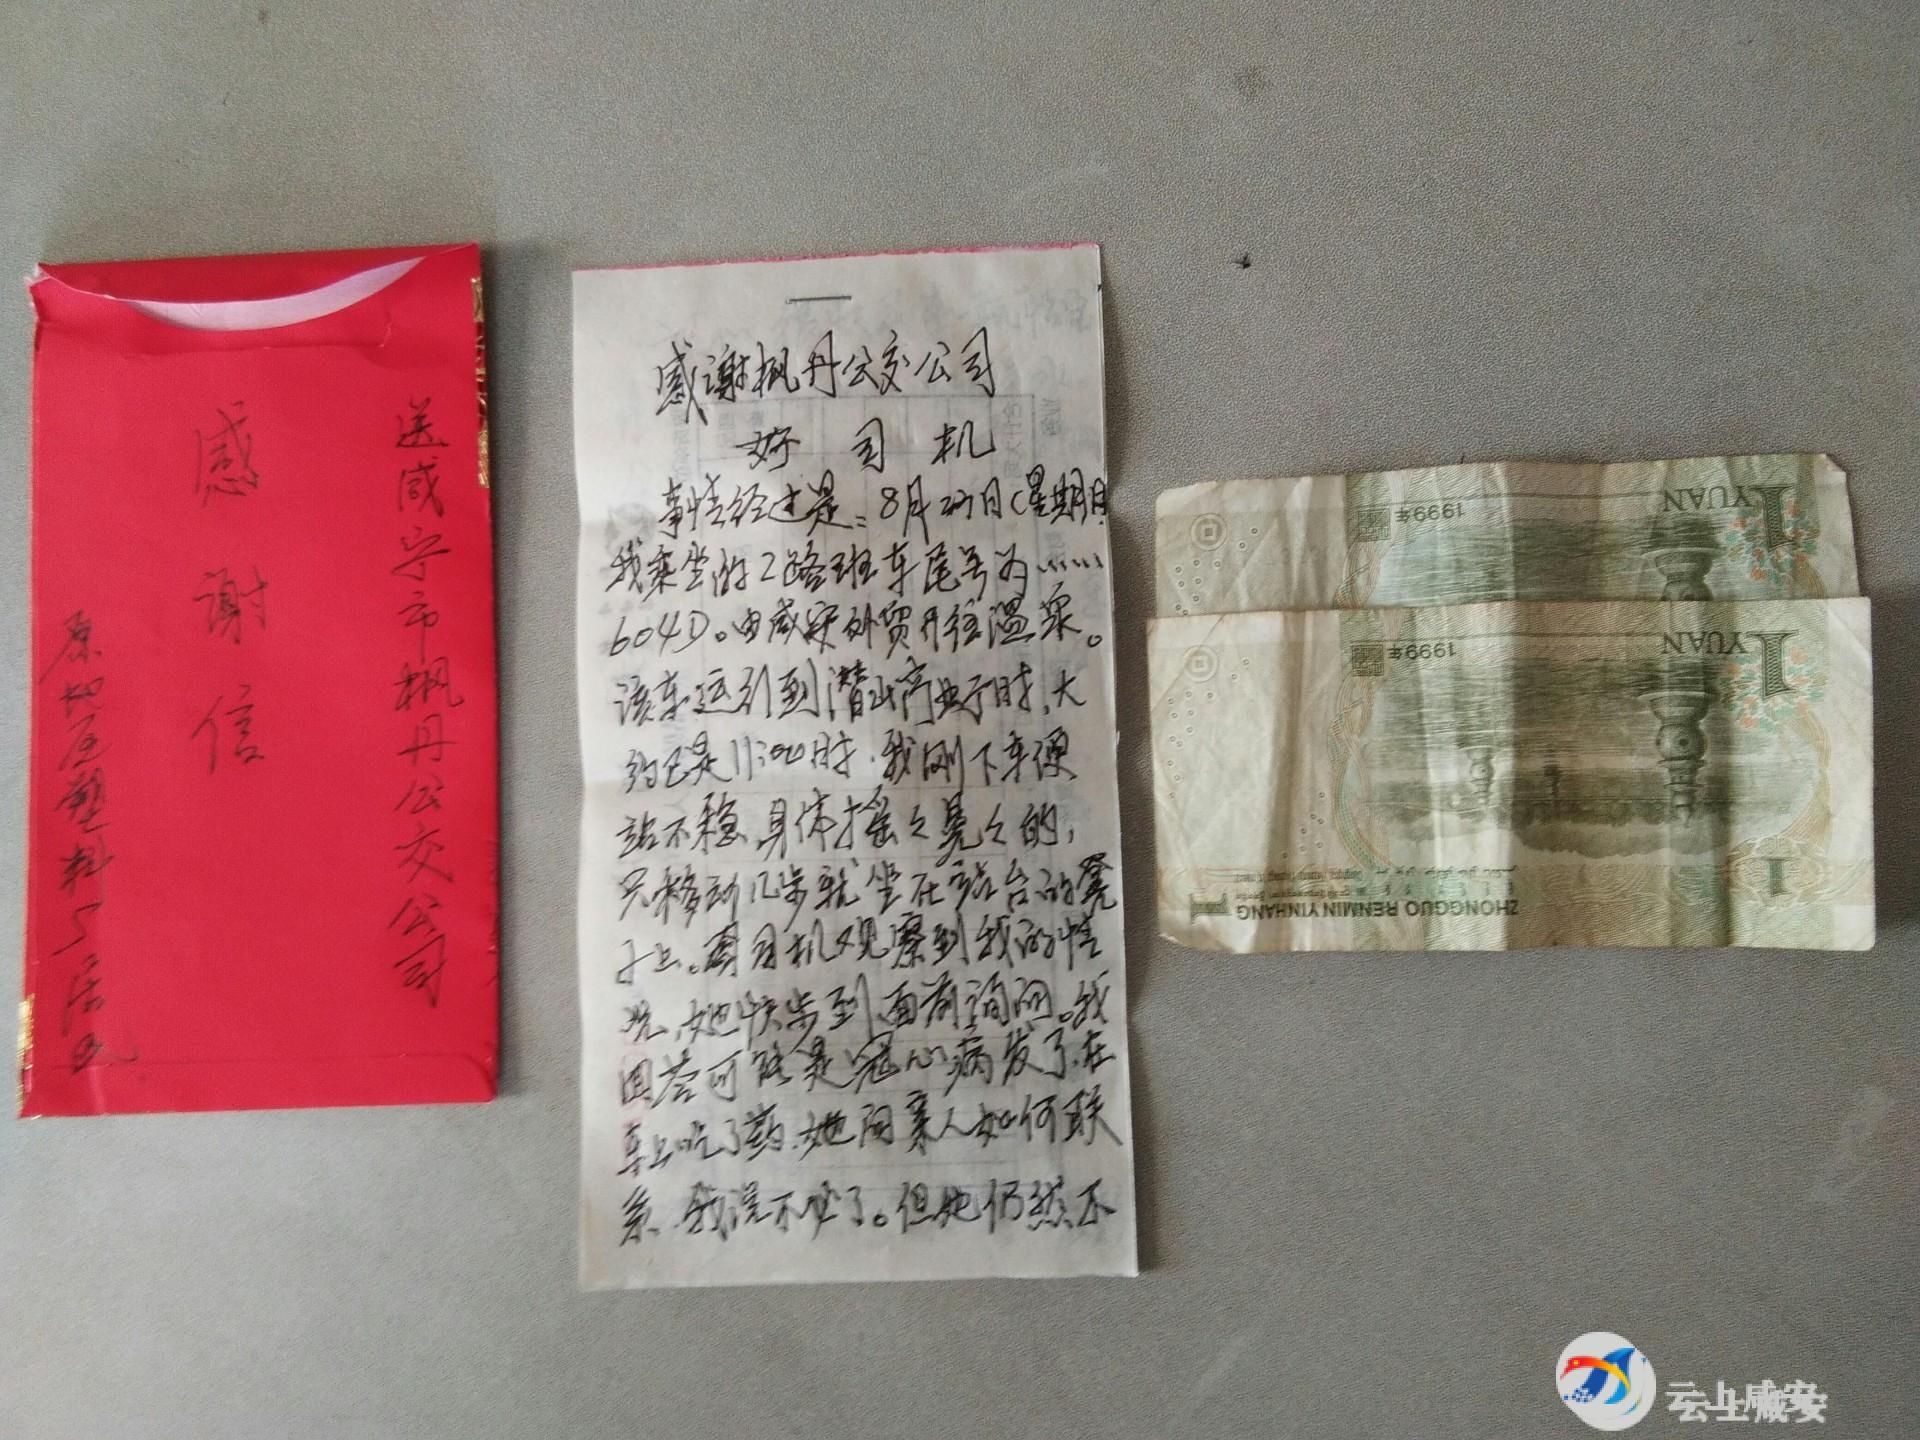 送咸宁市枫丹公交公司
感谢信
感谢枫丹公交公司
好司机
事情经过是:8月27日(星期日
我乘坐的2路班车尾号为……
604D。由咸安外贸开往温泉。
该车运行到潜山商业厅时,大
约已是11:00时.我刚下车便
站不稳、身体摇々晃々的,
只移动几步就坐在站台的凳
子上。司机观察到我的情
况,她快步到面前询问。我
回答可能是冠心病发了.在
车上吃了药.她问家人如何联
系.我说不必了。但她仍然不
1 YUAN
1999年
1 YUAN
1999年
1
ZHONGGUO RENMIN YINHANG
1
云上咸安